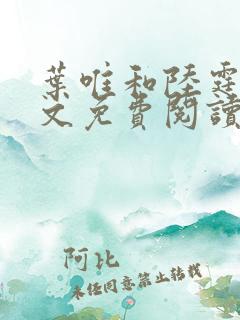 葉唯和陸霆
文免費閱讀
阿比
未經同意禁止轉載